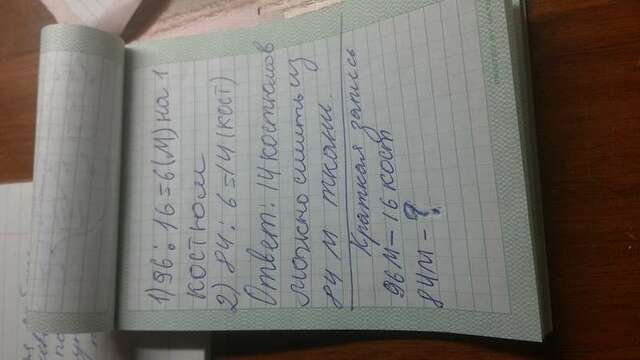 1) 96 : 16 = 6 (м) на 1
костюм
2) 84 : 6 = 14 (кост)
Ответ: 14 костюмов
можно сшить из
84 м ткани.
Краткая запись
96 м - 16 кост
84 м - ?